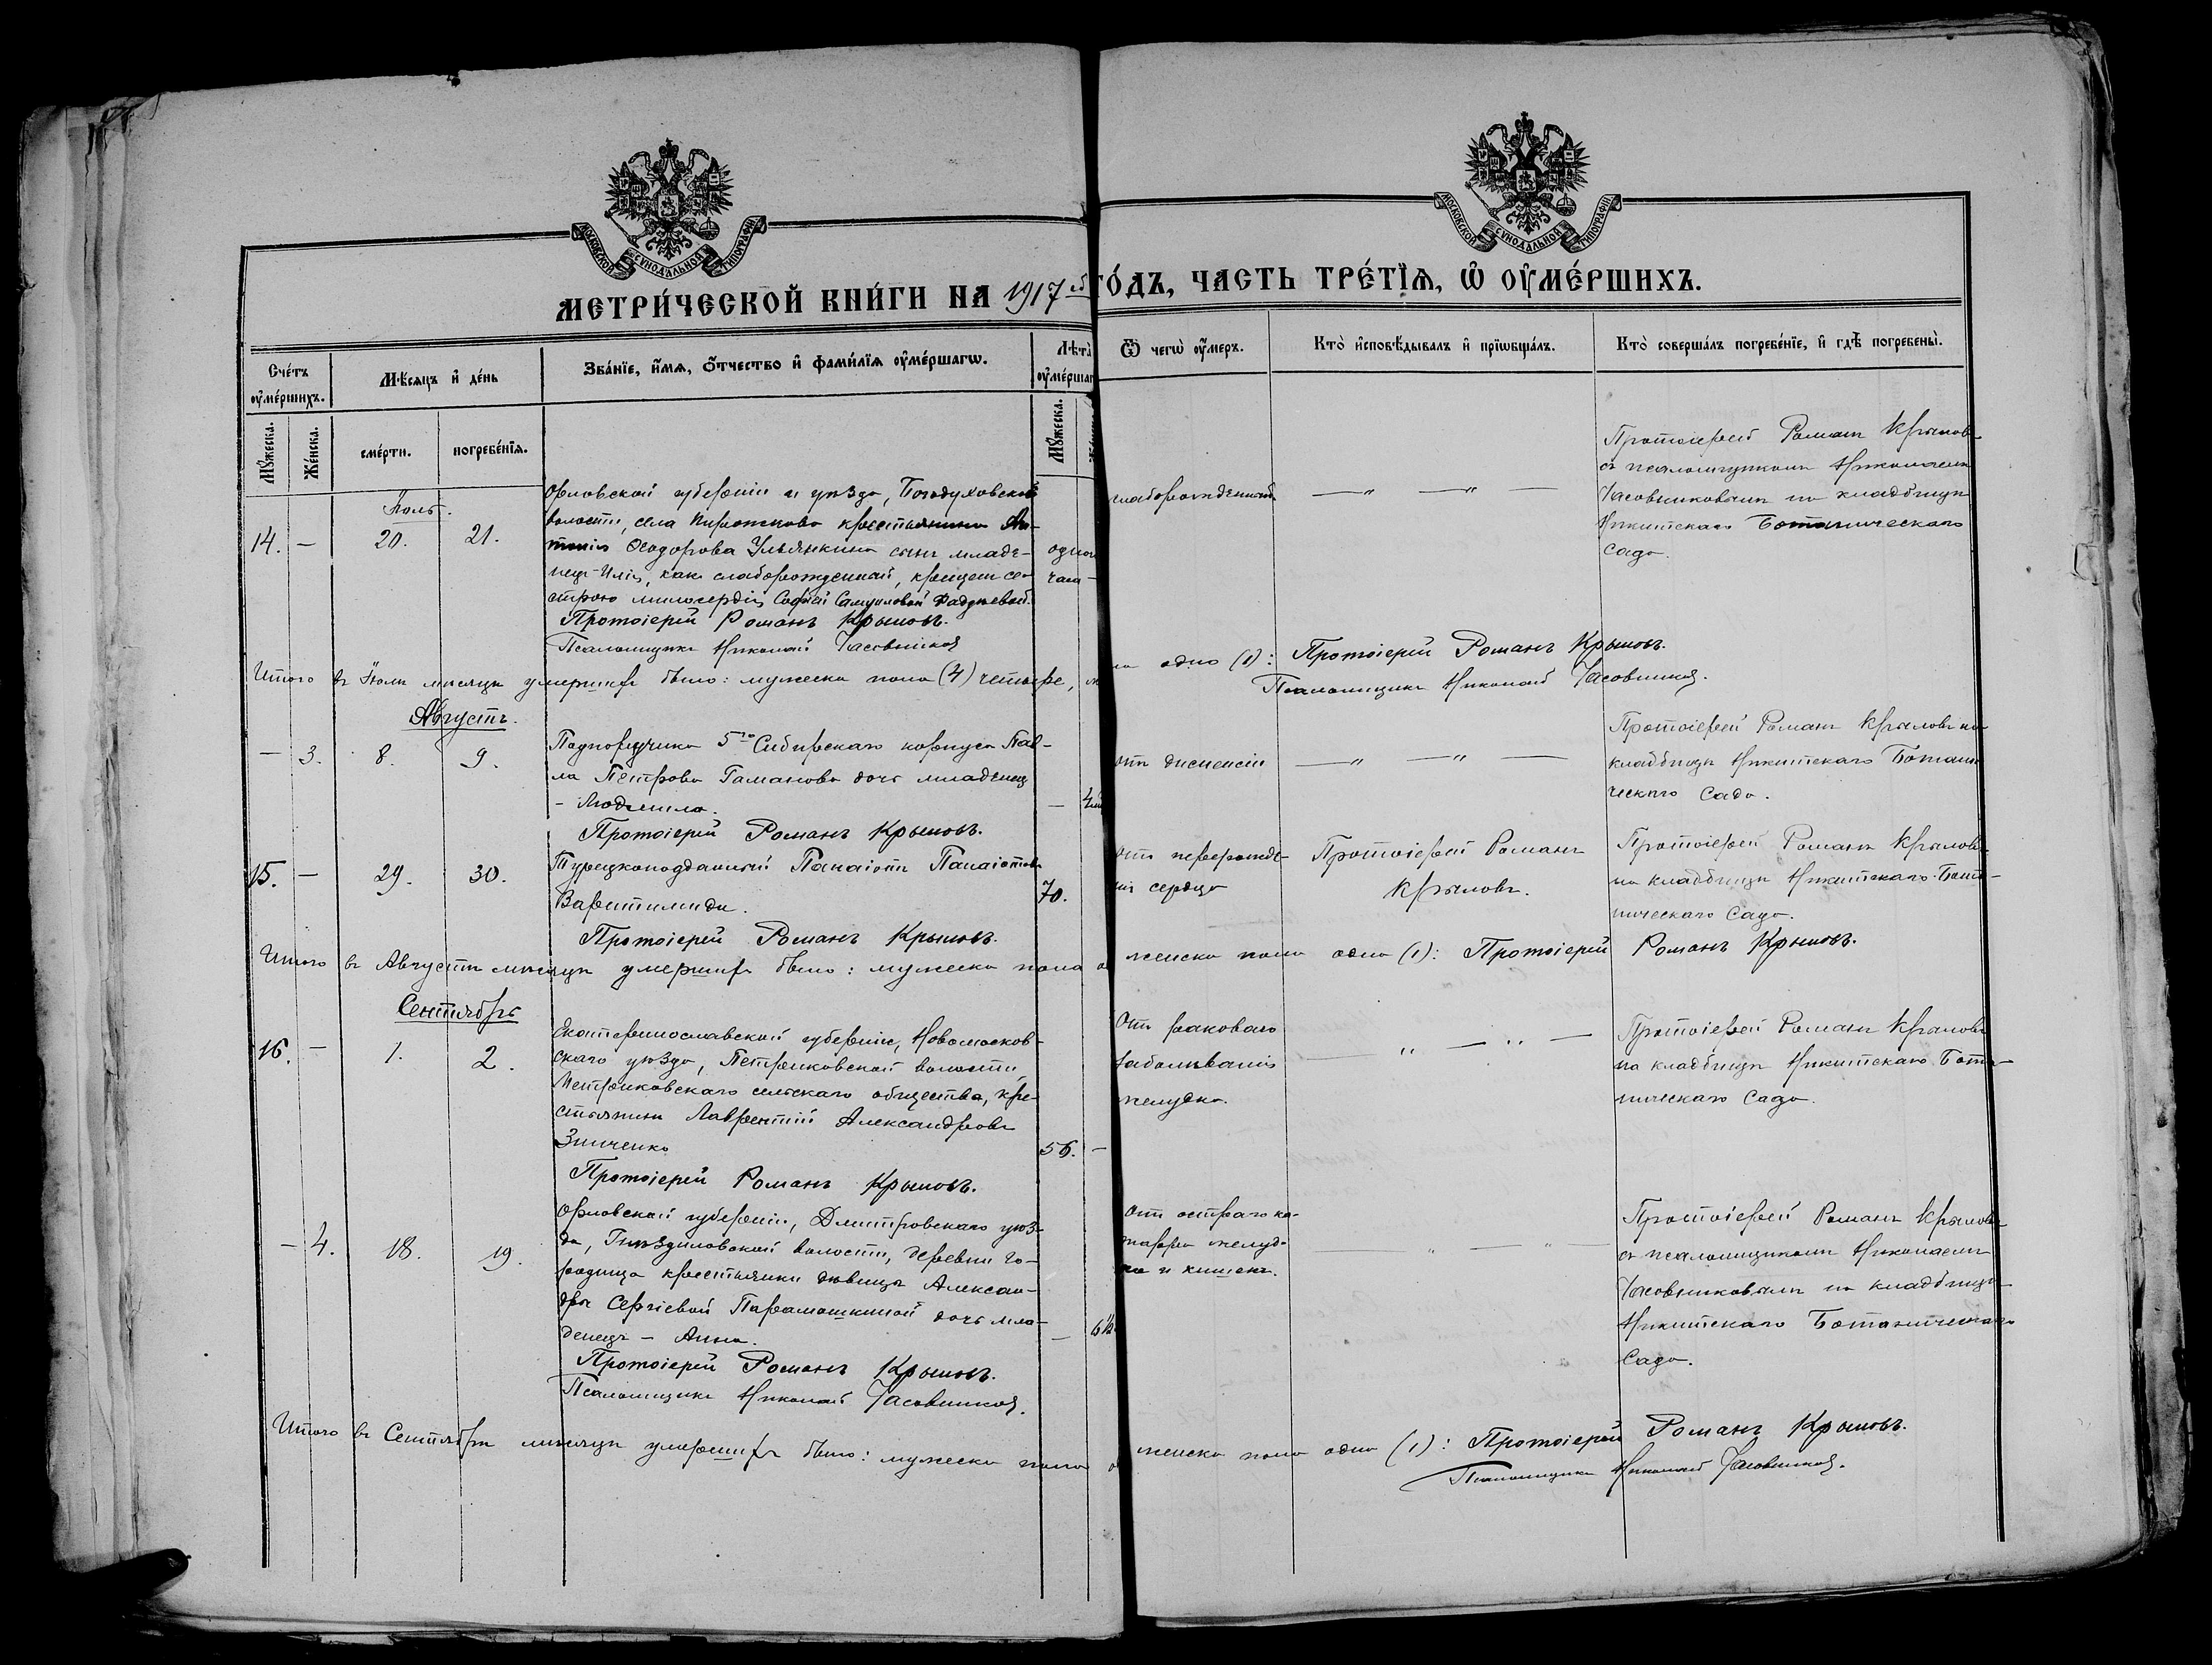 МОСКОВСКОЙ СУНОДАЛЬНОЙ ТИПОГРАФІИ
МОСКОВСКОЙ СУНОДАЛЬНОЙ ТИПОГРАФІИ
МЕТРИ́ЧЕСКОЙ КНИ́ГИ НА 1917 ый ГО́ДЪ, ЧАСТЬ ТРЕ́ТІЯ, Ѡ ОУМЕ́РШИХЪ.
Сче́тъ оуме́ршихъ.
Мѣсяцъ и де́нь
Зва́ніе, и́мя, о́тчество и фами́лія оуме́ршагѡ.
Лѣта̀ оуме́ршаг
Ѿ чегѡ̀ оу́меръ.
Кто̀ исповѣ́дывалъ и пріѡбща́лъ.
Кто̀ соверша́лъ погребе́ніе, и гдѣ̀ погребены̀.
Му́жеска.
Же́нска.
сме́рти.
погребе́нія.
Му́жеска.
Іюль.
14. — 20. 21.
Орловской губерніи и уѣзда, Богодуховской
волости, села Пирожково крестьянина Ан-
тонія Ѳеодорова Ульянкина сынъ младе-
нецъ-Илія, какъ слаборожденный, крещен се-
строю милосердія Софіей Самуиловой Фадѣевой.
Протоіерей Романъ Крыловъ.
Псаломщикъ Николай Часовников
одног
часа —
слаборожденный
—〃 —〃 —
Протоіерей Романъ Крылов
съ псаломщикомъ Николаемъ
Часовниковымъ на кладбищѣ
Никитскаго Ботаническаго
Сада.
Итого въ Іюлѣ мѣсяцѣ умершихъ было: мужеска пола (4) четыре,
ла одно (1): Протоіерей Романъ Крыловъ.
Псаломщикъ Николай Часовников.
Августъ.
— 3. 8. 9.
Подпоручика 5го Сибирскаго корпуса Пав-
ла Петрова Гаманова дочь младенец
- Людмила.
Протоіерей Романъ Крыловъ.
отъ диспепсіи
—〃 —〃 —
Протоіерей Романъ Крыловъ на
кладбищѣ Никитскаго Ботани
ческаго Сада.
15. — 29. 30.
Турецкоподданный Панаіотъ Панаіотовъ
70.
Протоіерей Романъ Крыловъ.
отъ перерожде-
нія сердца
Протоіерей Романъ
Крыловъ.
Протоіерей Романъ Крыловъ
на кладбищѣ Никитскаго Бота-
ническаго Сада.
Итого въ Августѣ мѣсяцѣ умершихъ было: мужеска пола о
женска пола одна (1): Протоіерей Романъ Крыловъ.
Сентябрь
16. — 1. 2.
Екатеринославской губерніи, Новомосков-
скаго уѣзда, Петриковской волости,
Петриковскаго сельскаго общества, кре-
стьянинъ Лаврентій Александровъ
Зинченко
56. —
Протоіерей Романъ Крыловъ.
Отъ раковаго
заболѣванія
желудка.
— 〃 — 〃 —
Протоіерей Романъ Крыловъ
на кладбищѣ Никитскаго Бота-
ническаго Сада.
— 4. 18. 19.
Орловской губерніи, Дмитровскаго уѣз-
да, Гнѣздиловской волости, деревни Го-
родища крестьянки дѣвицы Алексан-
дры Сергіевой Парамошкиной дочь мла-
денецъ - Анна.
Протоіерей Романъ Крыловъ.
Псаломщикъ Николай Часовников.
Отъ остраго ка-
тарра желуд-
ка и кишекъ.
〃 — 〃
Протоіерей Романъ Крыловъ
съ псаломщикомъ Николаемъ
Часовниковымъ на кладбищѣ
Никитскаго Ботаническаго
Сада.
Итого въ Сентябрѣ мѣсяцѣ умершихъ было: мужеска пола о
женска пола одна (1): Протоіерей Романъ Крыловъ.
Псаломщикъ Николай Часовников.